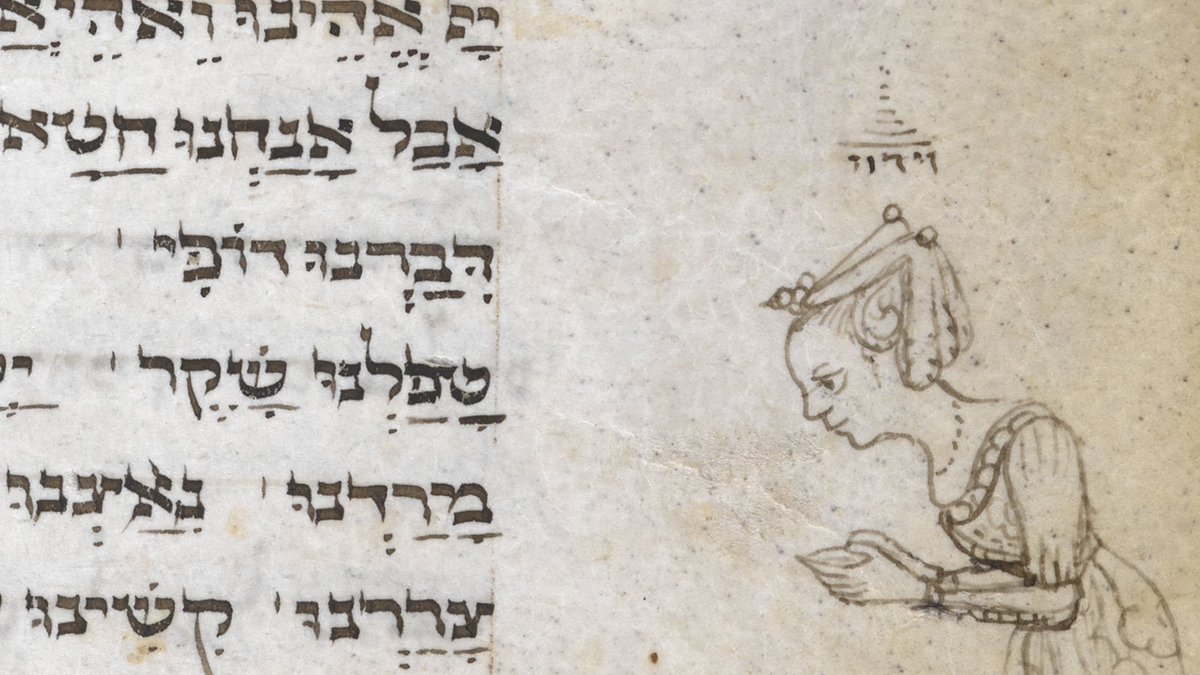 אלהינו ואלהי
אֲבַל אֲנַחְנוּ חטא
דִבַרְנוּ דוֹפִי
טָפַלְנוּ שֶׁקֶר
מָרַדְנוּ נִאַצְנוּ
צָרַרְנוּ קִשִׁינוּ
וידוי